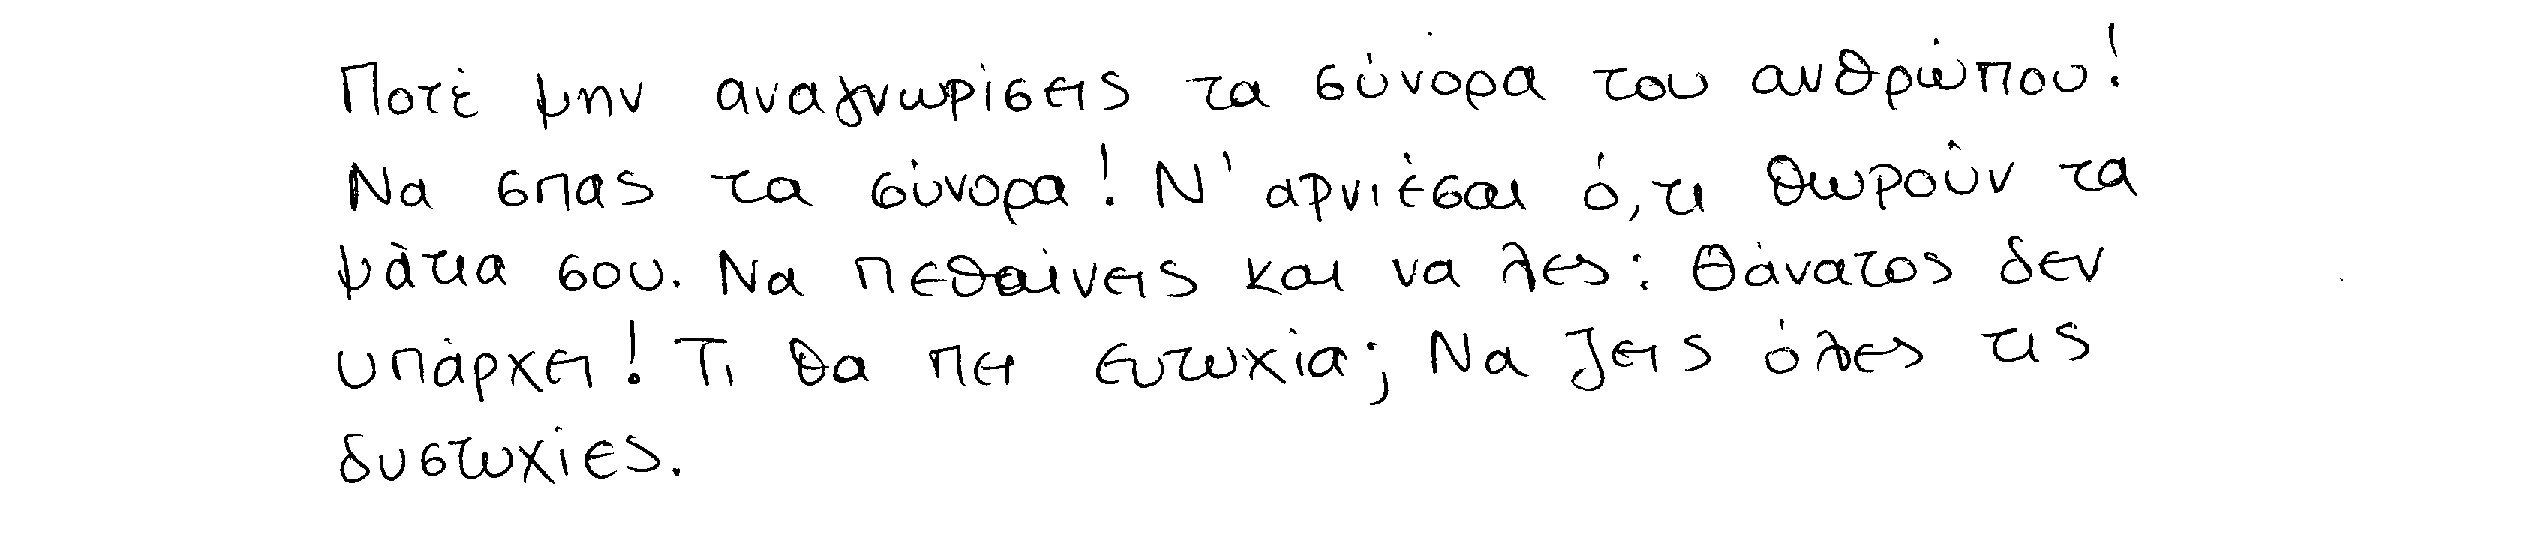 Ποτέ μην αναγνωρίσεις τα σύνορα του ανθρώπου!
Να σπας τα σύνορα! Ν' αρνιέσαι ό,τι θωρούν τα
μάτια σου. Να πεθαίνεις και να λες: Θάνατος δεν
υπάρχει! Τι θα πει ευτυχία; Να ζεις όλες τις
δυστυχίες.